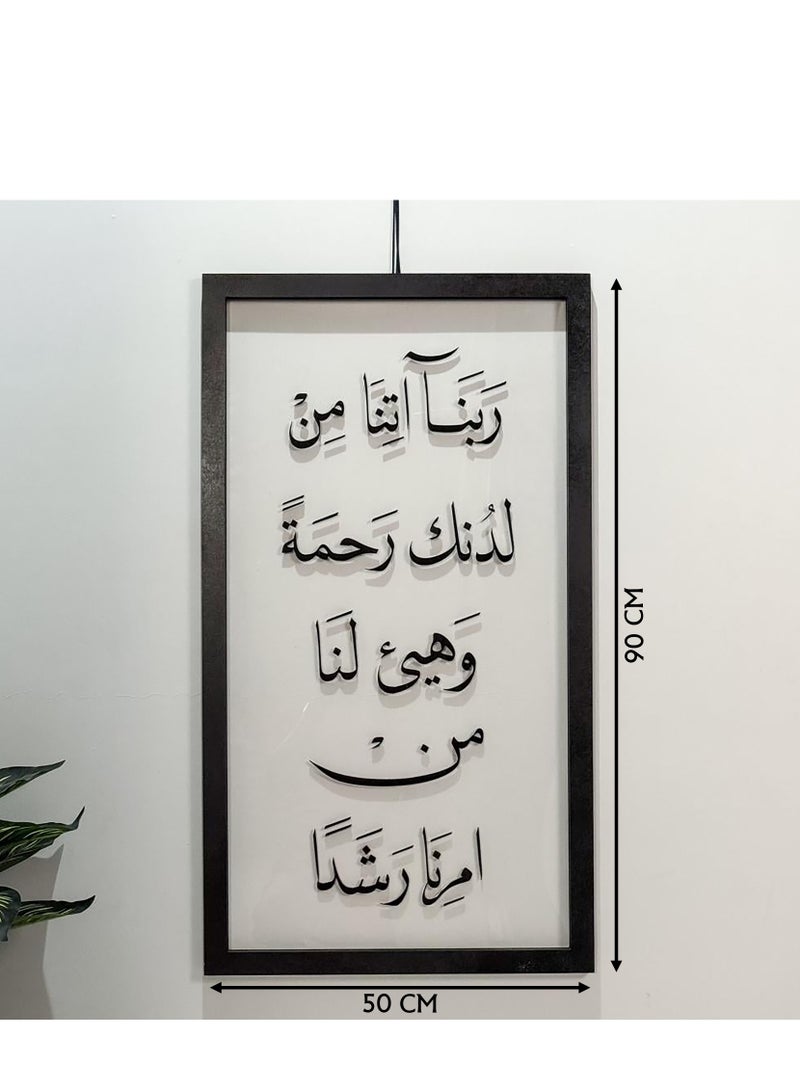 رَبَنَآ اتِنَا مِنْ
لدُنك رَحمَةً
وَهيئ لَنَا
من ْ
امرِنَا رَشَدًا
90 CM
50 CM